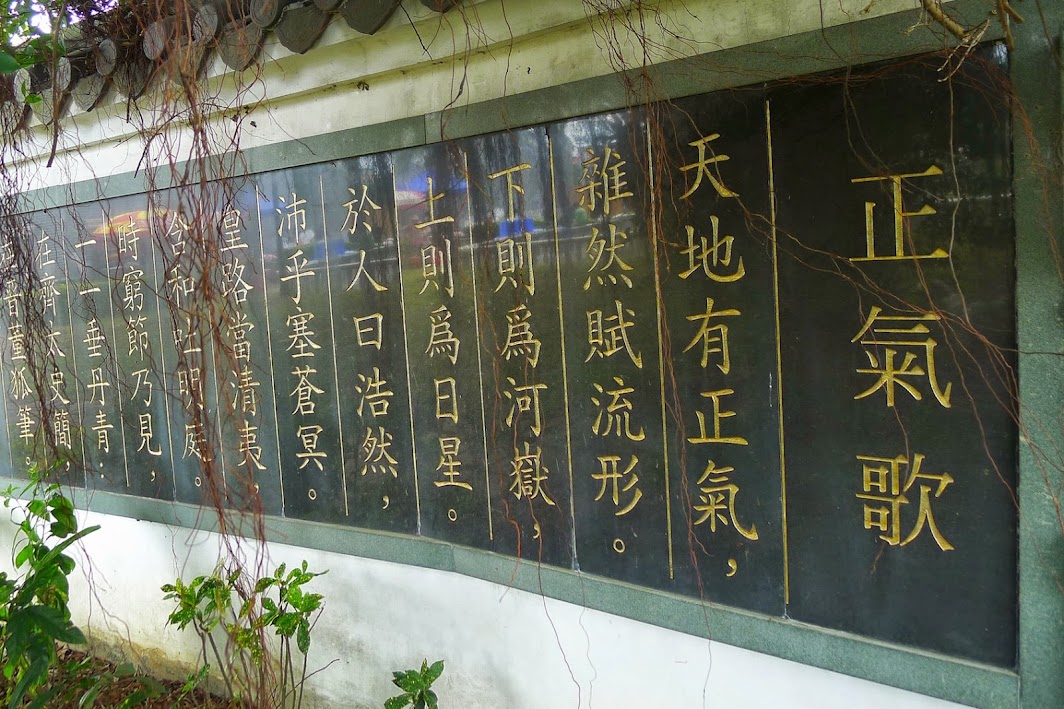 正氣歌
天地有正氣，
雜然賦流形。
下則爲河嶽，
上則爲日星。
於人曰浩然，
沛乎塞蒼冥。
皇路當清夷，
含和吐明庭。
時窮節乃見，
一一垂丹青：
在齊太史簡，
晉董狐筆